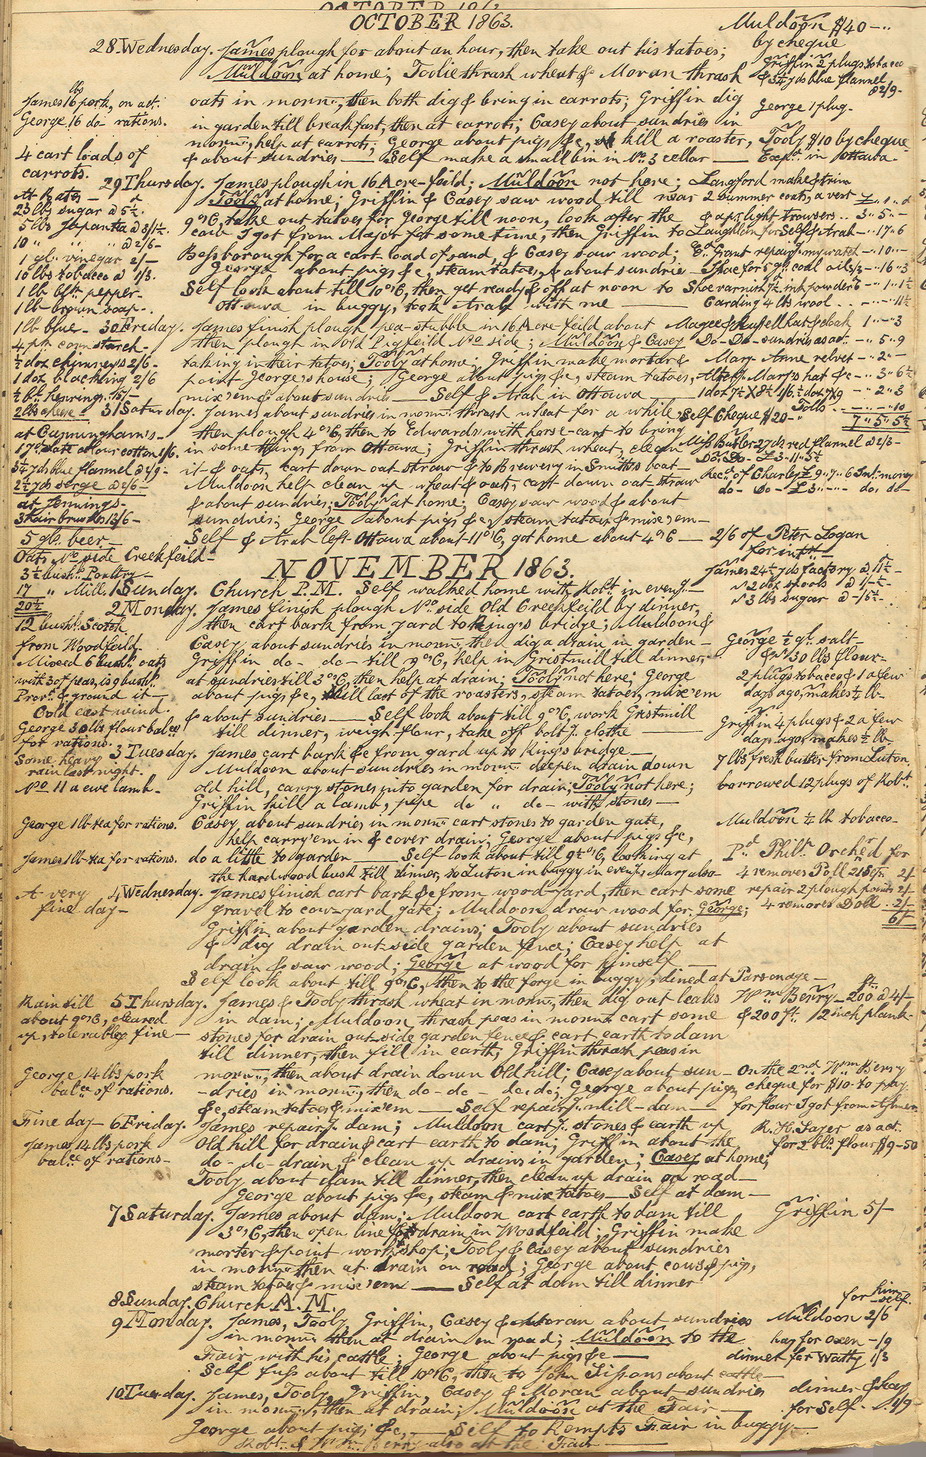 OCTOBER 1863.
Muldoon $40-..
by cheque
28 Wednesday. James plough for about an hour, then take out his tatoes;
Griffin 2 plugs tobacco
Muldoon at home; Toolie thrash wheat & Moran thrash
& 3½ yds blue flannel
@ 2/9-
James 16 lbs pork, on act.
oats in mornn:, then both dig & bring in carrots; Griffin dig
George 1 plug-
George 16 do rations.
in garden till breakfast, then at carrots; Casey about sundries in
mornn:, help at carrots; George about pigs, &c, kill a roaster,
Tooly $10 by cheque-
4 cart loads of
carrots.
& about sundries — Self make a small bin in No. 3 cellar —
Expt. in Ottawa
29 Thursday. James plough in 16 Acre-feild; Muldoon not here;
Langford make & trim
At Bates-
Tooly at home; Griffin & Casey saw wood till near
2 summer coats, a vest
25 lbs sugar @ 5½.
9 o'C, take out tatoes for George till noon, look after the
& a pr. light trowsers .. 3 " 5 "-
5 lbs Japan tea @ 3/1½.
cow I got from Major for some time, then Griffin to
Laughlen for Self & Arab - 17 " 6
10 " " " @ 2/6-
1 gl. vinegar 2/-
Bessborough for a cart load of sand, & Casey saw wood;
Ed. Grant repairg. my watch - 10 " -
10 lbs tobacco @ 1/3.
George about pigs & c, steam tatoes, & about sundries -
Shoe for 5 gls. coal oil 3/3 - 16 " 3
1 lb blk. pepper-
Self look about till 10 o'C, then get ready & off at noon to
Shoe varnish 7½. ink powder 6
1 lb brown soap-
Ottawa in buggy, took Arab with me —
Carding 4 lbs wool
1 lb blue-
30 Friday. James finish plough pea-stubble in 16 Acre-feild about
Magee & Russell hat & cloak 1 " - " 3
4 pks corn starch-
then plough in Old Pigfeild No. side; Muldoon & Casey
Do- Do- sundries as act. - 5 " 9
½ doz chimneys 2/6-
taking in their tatoes; Tooly at home; Griffin make mortar &
Mary Anne velvet - 2 " -
1 doz blacking 2/6
point George's house; George about pigs & c, steam tatoes,
Mary's hat & c - 3 " 6½
½ bl. herrings. 15/-
mix 'em & about sundries — Self & Arab in Ottawa
2 lbs cheese
31 Saturday. James about sundries in mornn: thrash wheat for a while
Self Cheque $20-
7 " 5 " 5½
at Cunningham's-
then plough 4 o'C, then to Edwards with horse-cart to bring
Miss Butler 27 yds red flannel @ 2/6-
17 yds slate colour cotton 1/6.
in some things from Ottawa; Griffin thrash wheat, clean
Do- Do- £3-11-5½
3½ yds blue flannel @ 2/9-
it & oats, cart down oat straw & to Brewery in Smith's boat
Recd. of Charley £9 " 7 " 6 Int. money
2½ yds serge @ 2/6-
Muldoon help clean up wheat & oats, cart down oat-straw
do- do- £3 " - " -. do. do
at Jennings-
& about sundries; Tooly at home; Casey saw wood & about
3 hair brushes 12/6-
sundries; George about pigs & c, steam tatoes & mix 'em-
5 gls. beer-
Self & Arab left Ottawa about 11 o'C, got home about 4 o'C —
2/6 of Peter Logan
for intst-
Oats No. side Creekfeild-
NOVEMBER 1863.
James 24½ yds factory @ 11½-
3½ bush. Poultry-
" 2 doz spools @ 11½-
17 " Mill
1 Sunday. Church P.M. Self walked home with Robt. in eveng-
20½
" 3 lbs sugar @ -6½-
2 Monday. James finish plough No. side Old Creekfeild by dinner,
12 bush. Scotch
then cart bark from yard to King's bridge; Muldoon &
from Woodfeild.
Casey about sundries in mornn: then dig a drain in garden-
George ½ gl. salt-
Mixed 6 bush. oats
Griffin do- do- till 9 o'C, help in Gristmill till dinner,
& 30 lbs flour-
with 3 of peas, is 9 bush.
at sundries till 3 o'C, then help at drain; Tooly not here; George
2 plugs tobacco & 1 a few
Prov. & ground it-
about pigs & c, kill last of the roasters, steam tatoes, mix 'em
days ago, makes ½ lb-
Cold east wind.
& about sundries — Self look about till 9 o'C, work Gristmill
George 30 lbs flour balce
till dinner, weigh flour, take off bolt g. clothe —
Griffin 4 plugs & 2 a few
for rations.
days ago, makes ½ lb-
3 Tuesday. James cart bark & c from yard up to King's bridge-
Some heavy
rain last night.
Muldoon about sundries in mornn: deepen drain down
7 lbs fresh butter from Luton,
No. 11 a ewe lamb-
old hill, carry stones into garden for drain; Tooly not here;
borrowed 12 plugs of Robt.
Griffin kill a lamb, pipe do " do- with stones-
George 1 lb tea for rations.
Casey about sundries in mornn: cart stones to garden gate,
Muldoon ½ lb tobacco-
help carry 'em in & cover drain; George about pigs & c,
James 1 lb tea for rations.
do a little to garden — Self look about till 9½ o'C, looking at
Pd. Phill. Orch'rd for
the hardwood bush till dinner, to Luton in buggy in eveng, Mary also-
4 removes Doll 2/
A very
fine day-
4 Wednesday. James finish cart bark & c from wood-yard, then cart some
repair 2 plough points 2/-
gravel to cow-yard gate; Muldoon draw wood for George;
4 removes Doll . 2/-
6/-
Griffin about garden drains; Tooly about sundries
& dig drain out side garden fence; Casey help at
drain & saw wood; George at wood for himself —
Self look about till 9 o'C, then to the forge in buggy, dined at Parsonage-
Rain till
5 Thursday. James & Tooly thrash wheat in mornn:, then dig out leaks
Wm. Berry- 200 @ 4/-
about 9 o'C, cleared
in dam; Muldoon thrash peas in mornn: cart some
& 200 ft. 12 inch plank-
up, tolerabley fine-
stones for drain out-side garden fence & cart earth to dam
till dinner, then fill in earth; Griffin thrash peas in
George 14 lbs pork
mornn:, then about drain down Old hill; Casey about sun-
On the 2nd. Wm Berry
balce of rations.
-dries in mornn:, then do- do- do. do; George about pigs,
cheque for $10- to pay
& c, steam tatoes & mix 'em — Self repairg. mill-dam —
for flour I got from
Fine day-
6 Friday. James repairg. dam; Muldoon cartg. stones & earth up
as act.
James 14 lbs pork
Old hill for drain & cart earth to dam; Griffin about the
for 2 bls. flour $9-50
balce of rations-
do- do- drain & clean up drains in garden; Casey at home;
Tooly about dam till dinner, then clean up drain on road-
George about pigs & c, steam & mix tatoes- Self at dam-
7 Saturday. James about dam; Muldoon cart earth to dam till
Griffin 5/-
3 o'C, then open line for drain in Woodfeild; Griffin make
morter & point workshop; Tooly & Casey about sundries
in mornn: then at drain on road; George about cows & pigs,
steam tatoes & mix 'em — Self at dam till dinner
8 Sunday. Church A.M.
for him-
self.
9 Monday. James, Tooly, Griffin, Casey & Moran about sundries
Muldoon 2/6
in mornn: then at drain on road; Muldoon to the
hay for Oxen -/9
Fair with his cattle; George about pigs & c —
dinner for Watty 1/3
Self fuss about till 10 o'C, then to John about cattle-
10 Tuesday. James, Tooly, Griffin, Casey & Moran about sundries
dinner & hay
in mornn:, then at drain; Muldoon at the Fair —
for Self-
George about pigs, & c, — Self to Kempts Fair in buggy-
Robt. & Wm. Berry also at the Fair —